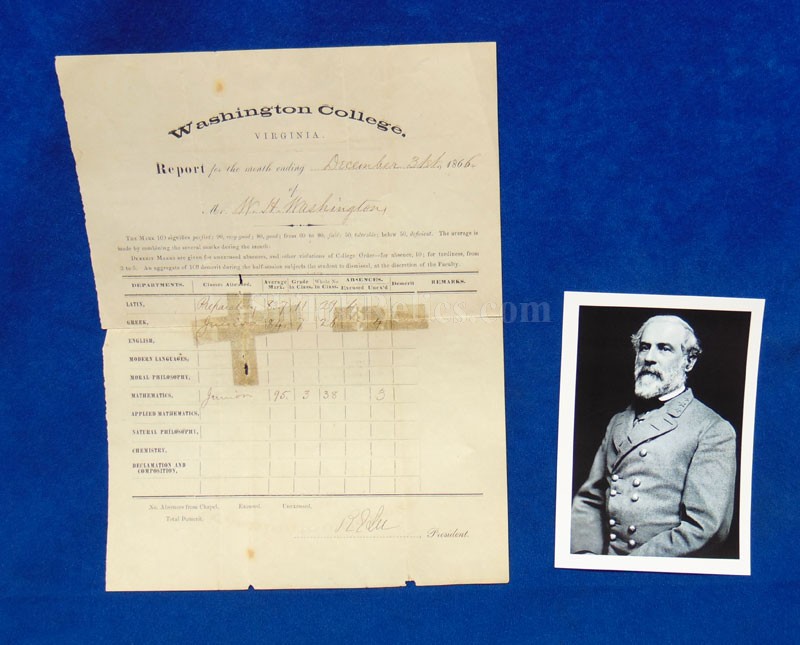 Washington College,
VIRGINIA.
Report for the month ending December 31st, 1866.
of
Mr. W. H. Washington,
THE MARK 100 signifies perfect; 90, very good; 80, good; from 60 to 80, fair; 50, tolerable; below 50, deficient. The average is
made by combining the several marks during the month.
DEMERIT MARKS are given for unexcused absences, and other violations of College Order—for absence, 10; for tardiness, from
2 to 5. An aggregate of 100 demerit during the half-session subjects the student to dismissal, at the discretion of the Faculty.
DEPARTMENTS. Classes Attended. Average Mark. Grade in Class. Whole No. in Class. ABSENCES. Excused Unex'd Demerit REMARKS.
LATIN, 87 11 29
GREEK, Junior 84
ENGLISH,
MODERN LANGUAGES,
MORAL PHILOSOPHY,
MATHEMATICS, Junior 95 3 38 3
APPLIED MATHEMATICS,
NATURAL PHILOSOPHY,
CHEMISTRY.
DECLAMATION AND COMPOSITION,
No. Absences from Chapel. Excused. Unexcused.
Total Demerit.
R E Lee
President.